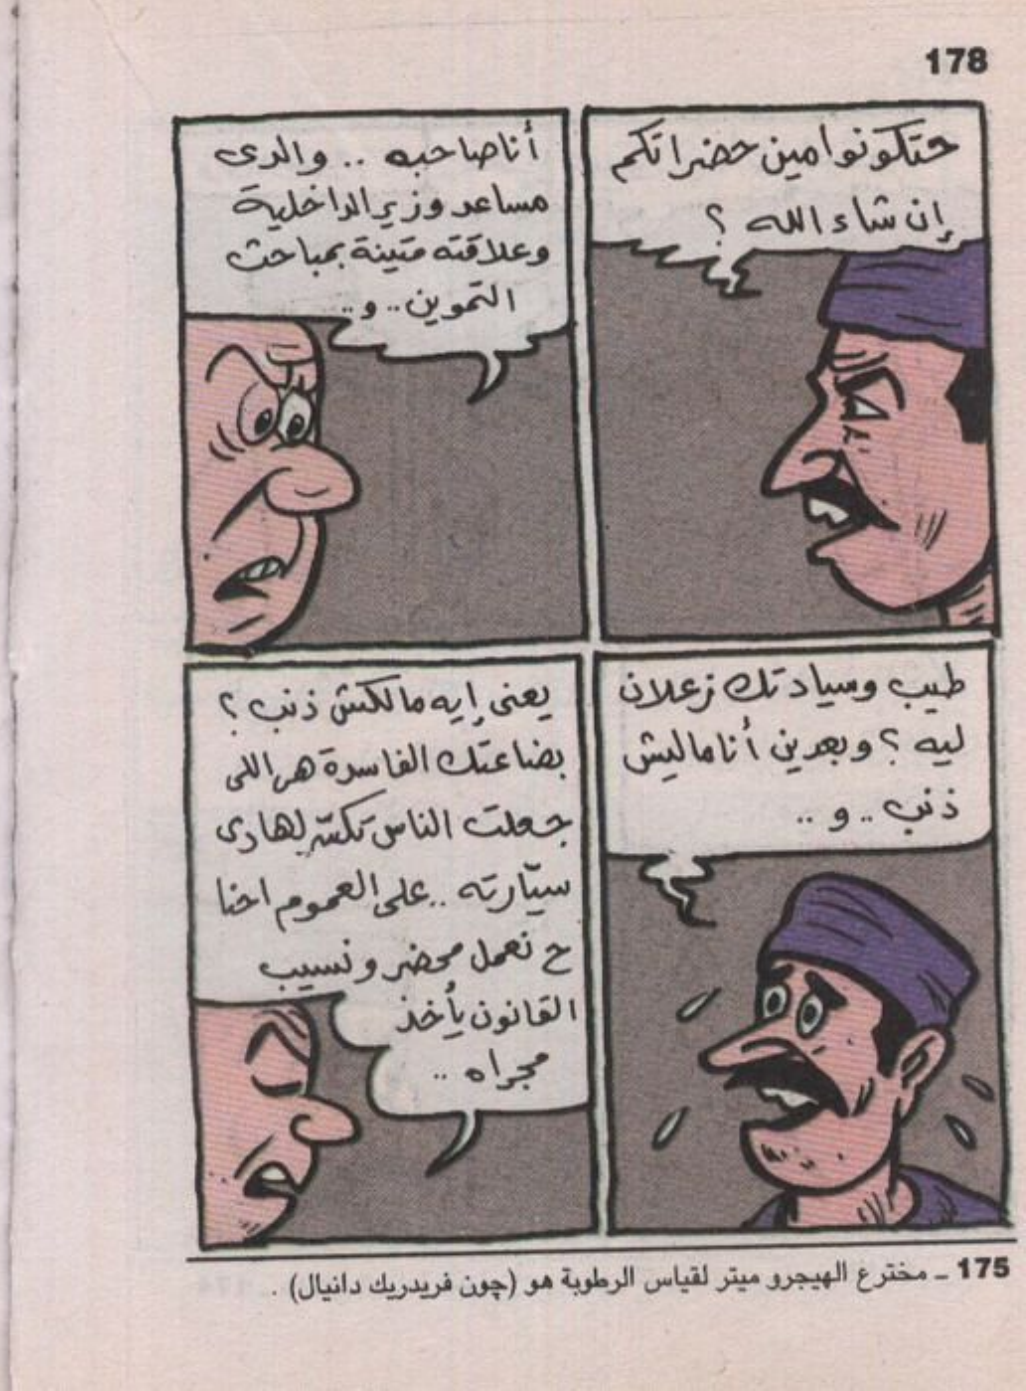 178
حتكونوا مين حضراتكم
إن شاء الله ؟
أنا صاحبه .. والدى
مساعد وزير الداخلية
وعلاقته متينة بمباحث
التموين .. و ..
طيب وسيادتك زعلان
ليه ؟ وبعدين أنا ماليش
ذنب .. و ..
يعنى إيه مالكش ذنب ؟
بضاعتك الفاسدة هى اللى
جعلت الناس تكسّر لهادى
سيّارته .. على العموم احنا
ح نعمل محضر ونسيب
القانون يأخذ
مجراه ..
175 ـ مخترع الهيجرو ميتر لقياس الرطوبة هو (چون فريدريك دانيال) .